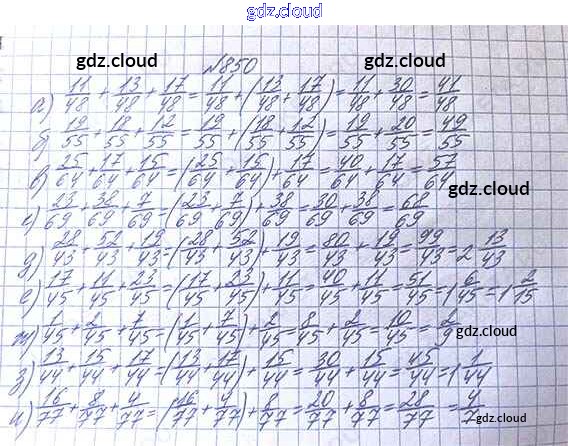 gdz.cloud
gdz.cloud gdz.cloud
№850
а) 11/48 + 13/48 + 17/48 = 11/48 + (13/48 + 17/48) = 11/48 + 30/48 = 41/48
б) 19/55 + 18/55 + 12/55 = 19/55 + (18/55 + 12/55) = 19/55 + 20/55 = 49/55
в) 25/64 + 17/64 + 15/64 = (25/64 + 15/64) + 17/64 = 40/64 + 17/64 = 57/64
gdz.cloud
г) 23/69 + 38/69 + 7/69 = (23/69 + 7/69) + 38/69 = 30/69 + 38/69 = 68/69
д) 28/43 + 52/43 + 19/43 = (28/43 + 52/43) + 19/43 = 80/43 + 19/43 = 99/43 = 2 13/43
е) 17/45 + 11/45 + 23/45 = (17/45 + 23/45) + 11/45 = 40/45 + 11/45 = 51/45 = 1 6/45 = 1 2/15
ж) 1/45 + 2/45 + 7/45 = (1/45 + 7/45) + 2/45 = 8/45 + 2/45 = 10/45 = 2/9
з) 13/44 + 15/44 + 17/44 = (13/44 + 17/44) + 15/44 = 30/44 + 15/44 = 45/44 = 1 1/44
и) 16/77 + 8/77 + 4/77 = (16/77 + 4/77) + 8/77 = 20/77 + 8/77 = 28/77 = 4/7
gdz.cloud